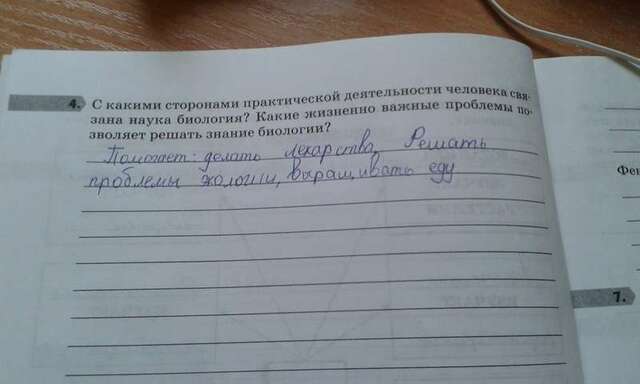 4. С какими сторонами практической деятельности человека свя-
зана наука биология? Какие жизненно важные проблемы по-
зволяет решать знание биологии?
Помогает: делать лекарства, Решать
проблемы экологии, выращивать еду
Фен
7.